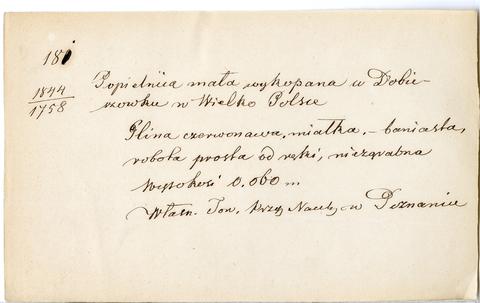 181
1844
1758
Popielnica mała wykopana w Dobie-
szowku w Wielko Polsce
Glina czerwonawa, miałka, – baniasta,
robota prosta od ręki, niezgrabna
Wysokość 0.060 m
Własn. Tow. Przyj. Nauk, w Poznaniu